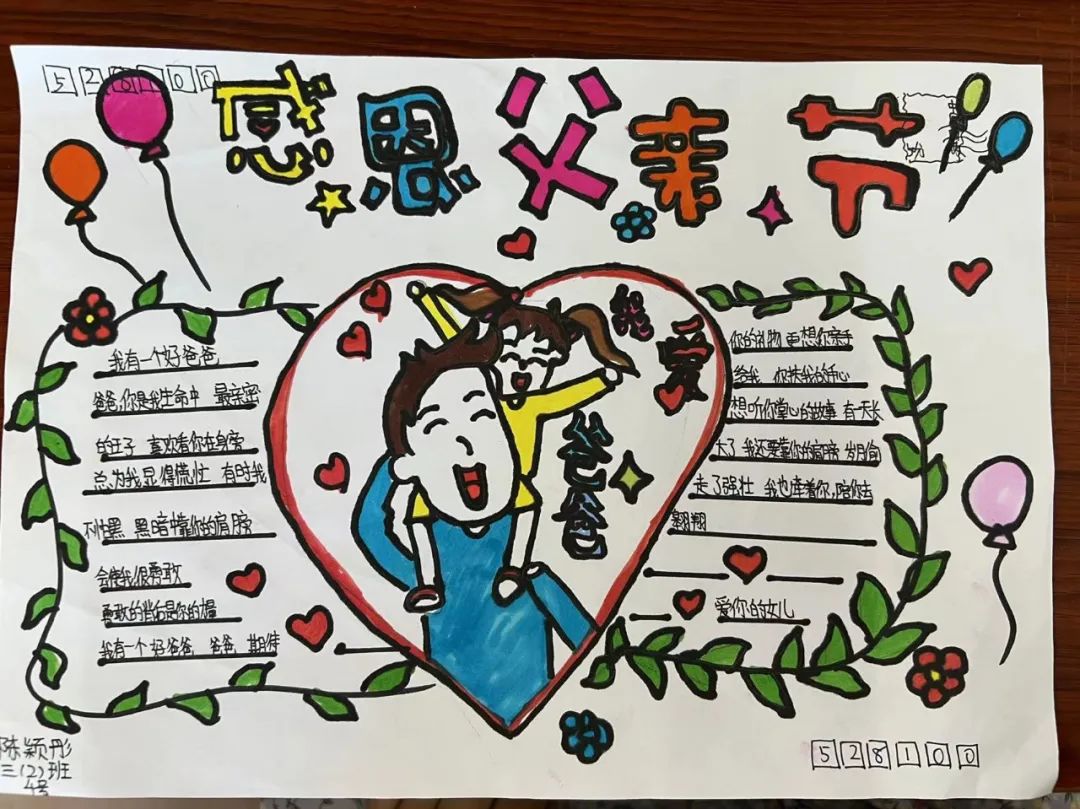 528100
感恩父亲节
我爱
爸爸
我有一个好爸爸
爸爸,你是我生命中 最亲密
的王子 喜欢看你在身旁
总为我显得慌忙 有时我
不怕黑 黑暗中靠你的肩膀
会使我很勇敢
勇敢的背后是你的榻
我有一个好爸爸 爸爸 期待
你的礼物 更想你亲手
给我 你扶我的手心
想听你掌心的故事 有天长
大了 我还要靠你的肩膀 岁月偷
走了强壮 我也牵着你,陪你去
翱翔
爱你的女儿
陈颖彤
三(2)班
4号
528100